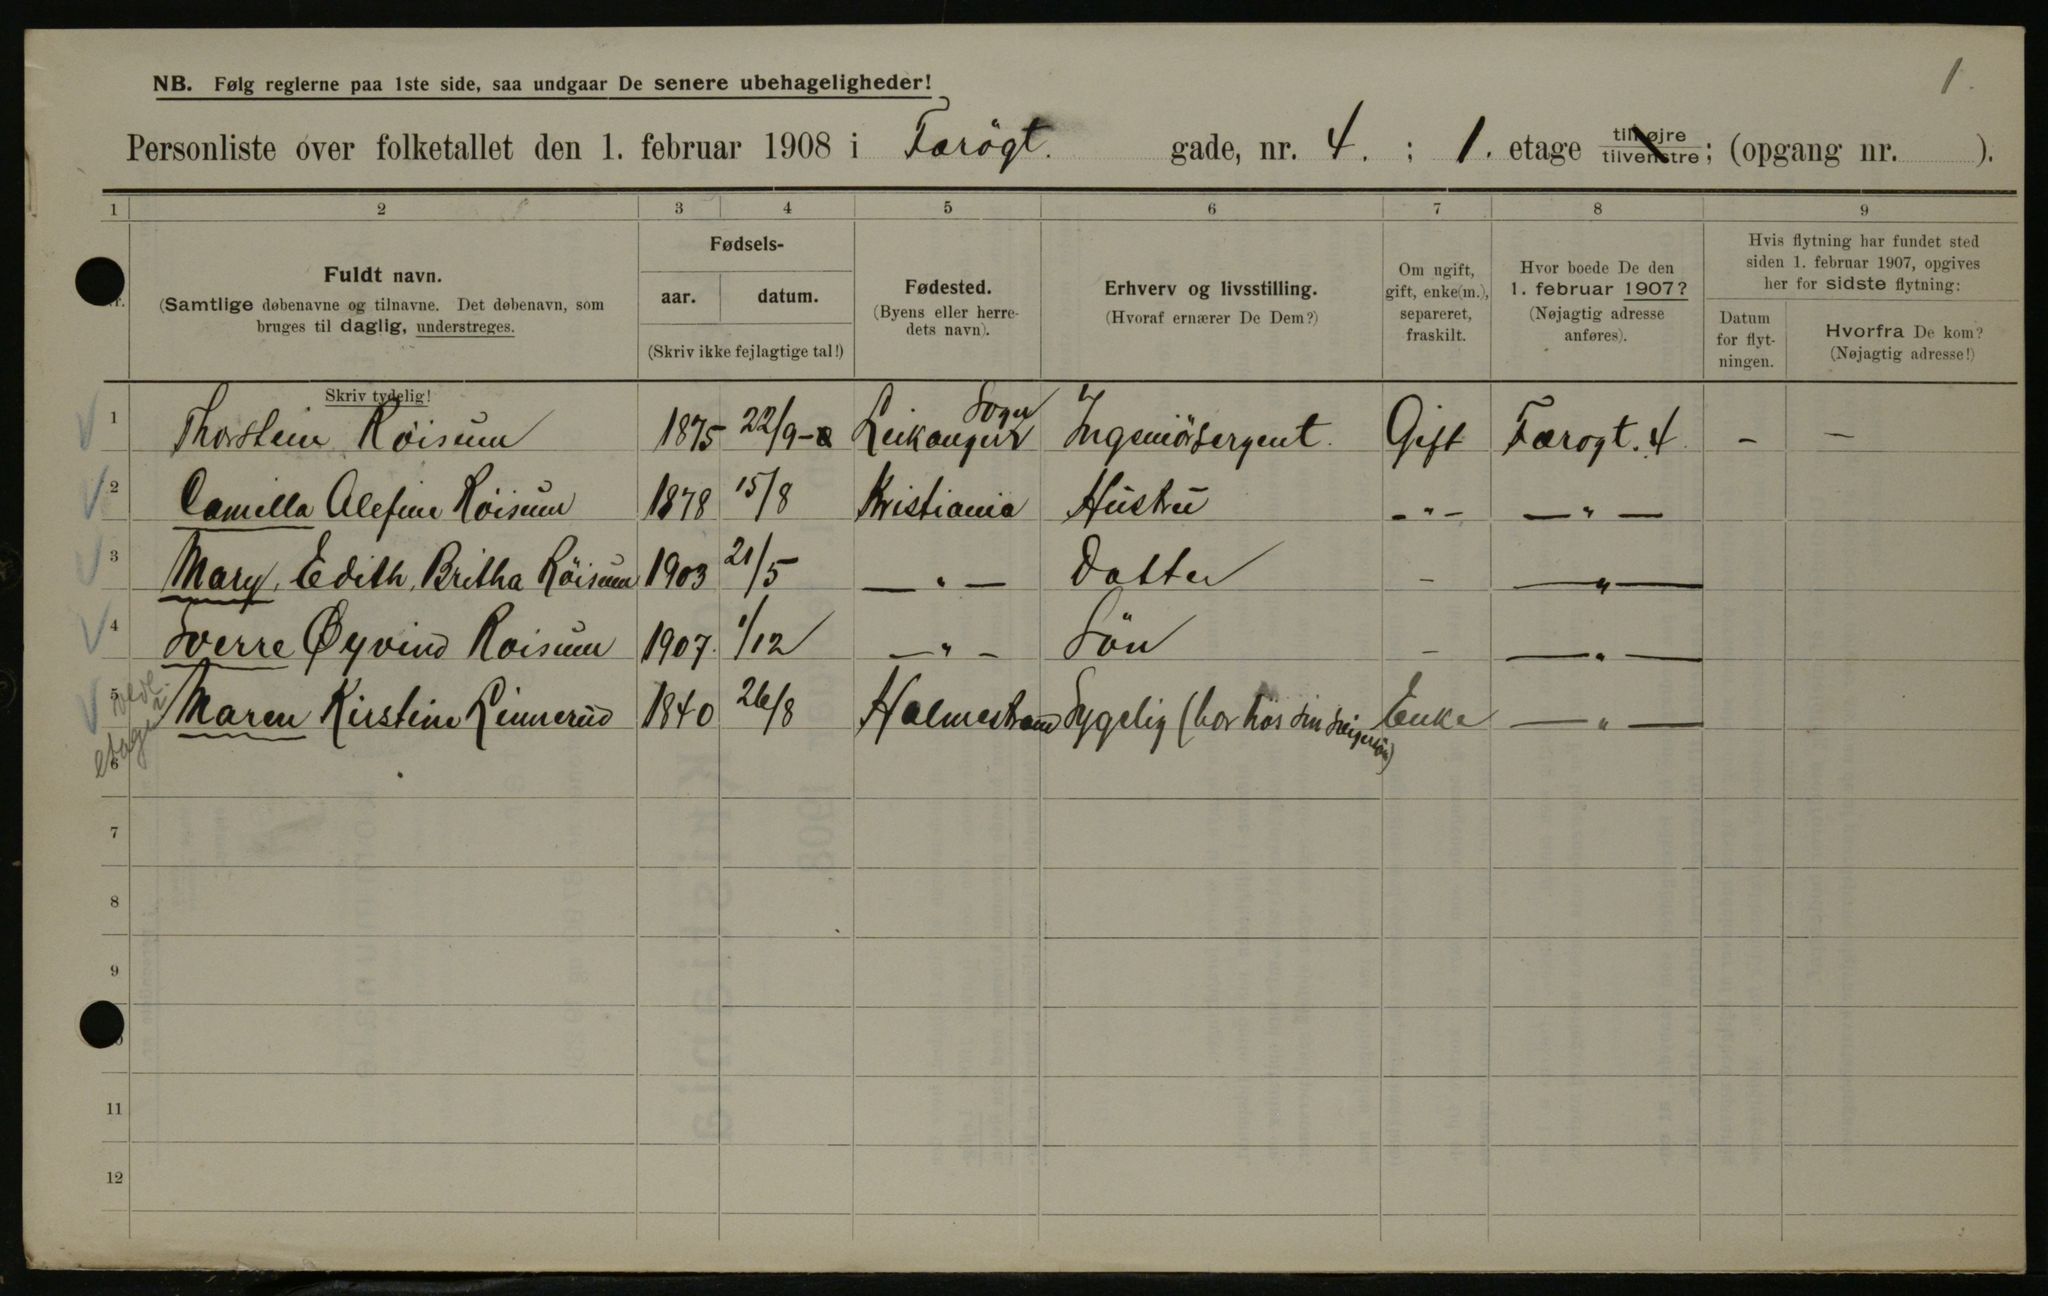 1.
NB. Følg reglerne paa 1ste side, saa undgaar De senere ubehageligheder!
Personliste over folketallet den 1. februar 1908 i Færögt. gade, nr. 4. ; 1. etage tilhøjre tilvenstre; (opgang nr. ).
1 2 3 4 5 6 7 8 9
Nr.
Fuldt navn.
(Samtlige døbenavne og tilnavne. Det døbenavn, som
bruges til daglig, understreges.
Skriv tydelig!
Fødsels-
aar. datum.
(Skriv ikke fejlagtige tal!)
Fødested.
(Byens eller herre-
dets navn).
Erhverv og livsstilling.
(Hvoraf ernærer De Dem?)
Om ugift,
gift, enke(m.),
separeret,
fraskilt.
Hvor boede De den
1. februar 1907?
(Nøjagtig adresse
anføres).
Hvis flytning har fundet sted
siden 1. februar 1907, opgives
her for sidste flytning:
Datum
for flyt-
ningen.
Hvorfra De kom?
(Nøjagtig adresse!)
1 Thorstein Røisum 1875 22/9 Leikanger Sogn Ingeniörsergent. Gift Færogt. 4. – –
2 Camilla Alefine Røisum 1878 15/8 Kristiania Hustru -"- -"-
3 Mary, Edith, Britha Røisum 1903 21/5 -"- Datter - -"-
4 Sverre Øyvind Roisum 1907. 1/12 -"- Sön - -"-
5 Maren Kirstine Linnerud 1840 26/8 Holmestrand Sygelig (bor hos sin svigersön) Enke -"-
etage
6
7
8
9
11
12